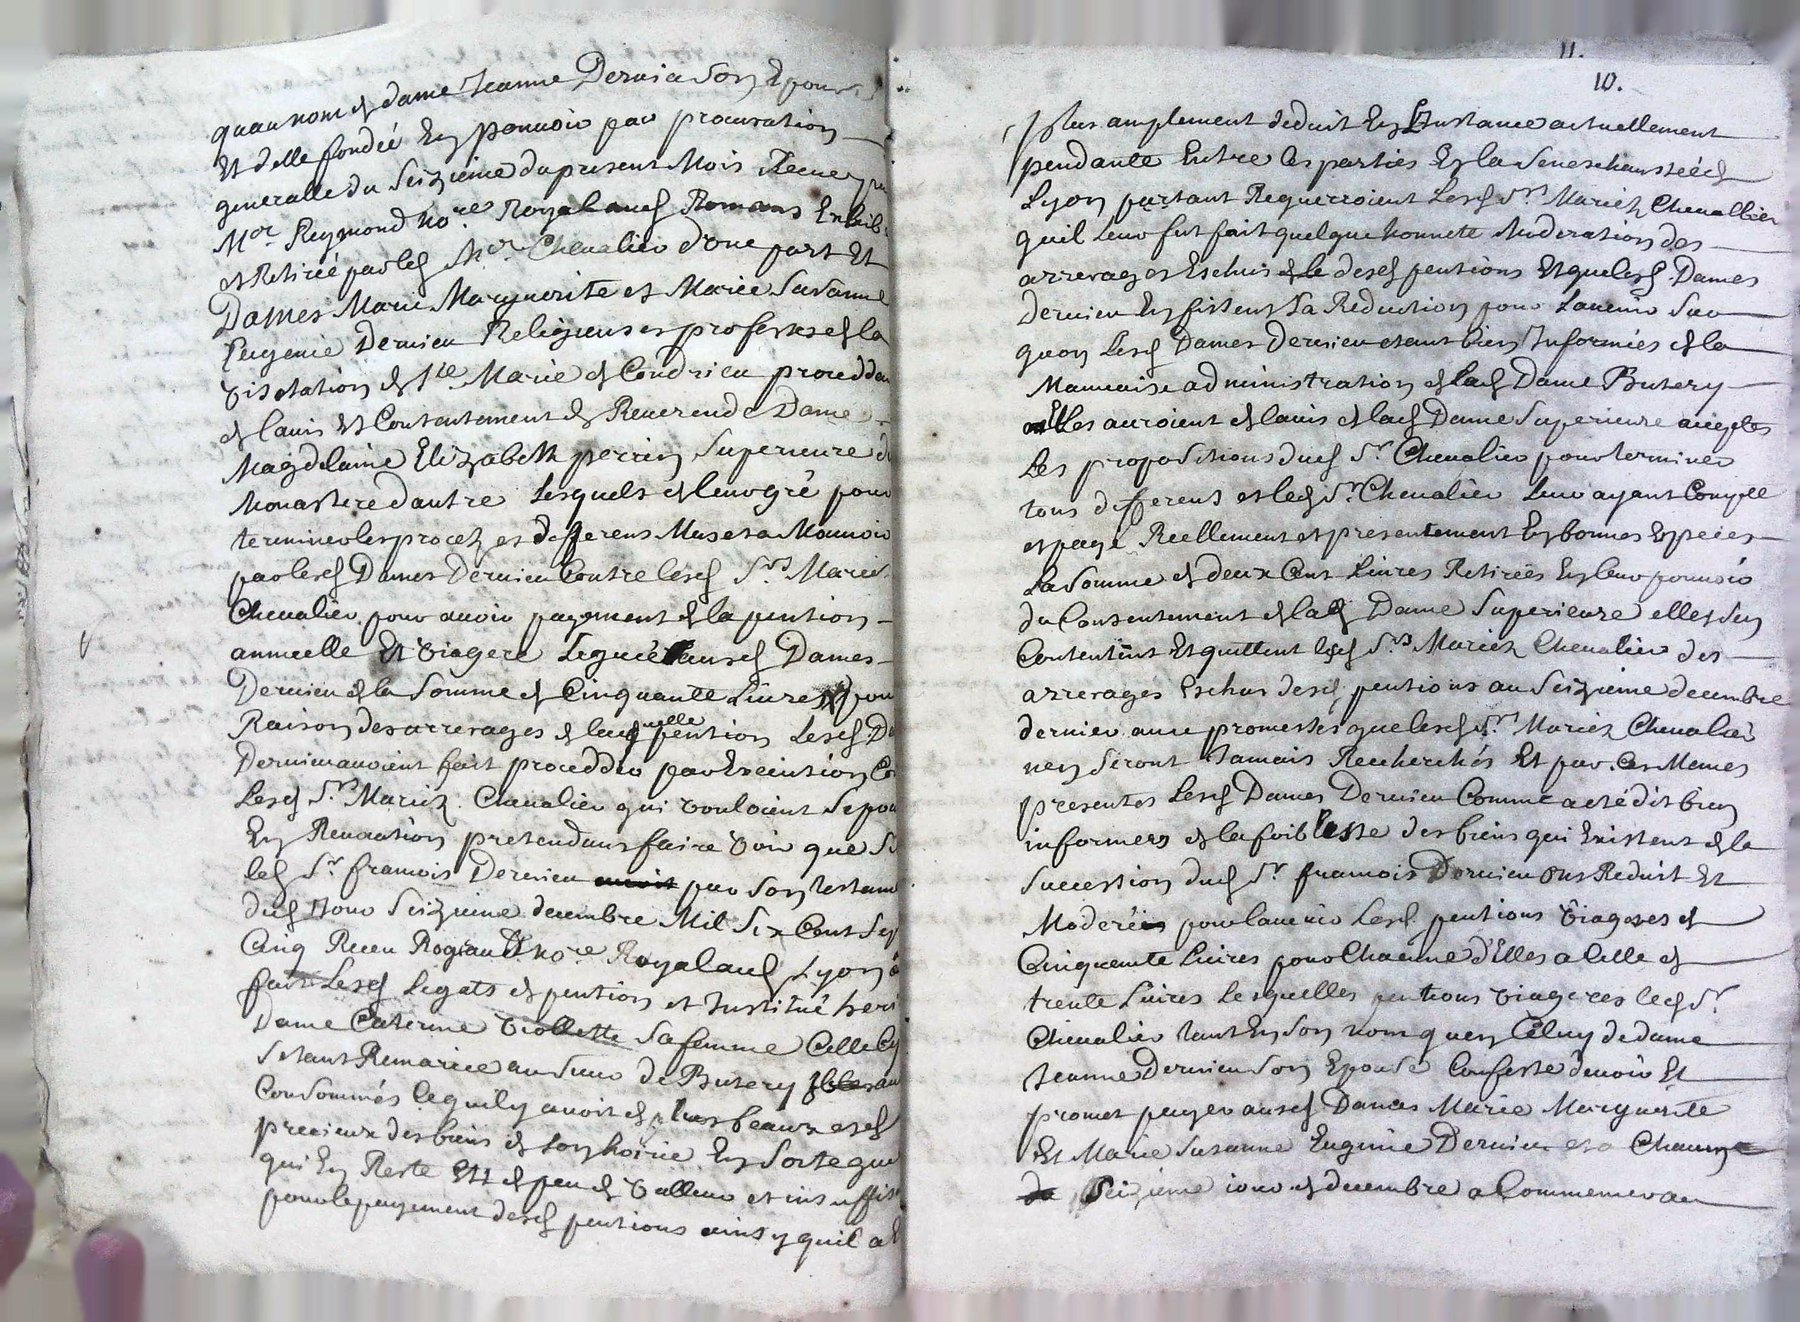 quau nom de dame Jeanne Dervieu Son Epouse
Et delle fondée En pouvoir par procuration
generalle du Seizieme du present Mois Receue par
Mor Reymond nore Royal aud Romans Exhibé
et Retirée par led Mor Chevalier d'une part Et
Dames Marie Marguerite et Marie Susanne
Eugenie Dervieu Religieuses professes de la
Visitation de Ste Marie de Condrieu proceddan
de lavis Et Contentement de Reverende Dame
Magdelaine Elizabeth perrin Superieure du
Monastere dautre Lesquels de leur gré pour
terminer les procez et differens Meus et a Mouvoir
par lesd Dames Dervieu Contre lesd Srs Mariez
Chevalier pour avoir payement de la pention
annuelle Et viagere Leguée ausd Dames
Dervieu de la Somme de Cinquante Livres pour
Raison des arrerages de laquelle pention Lesd Da
Dervieu avoient fait procedder par Execution Con
Lesd Srs Mariez Chevalier qui vouloient Se pou
En Revocation pretendans faire voir que Si
led Sr francois Dervieu avoit par Son testam
dud Jour Seizieme decembre Mil Six Cent Sep
Cinq Receu Rogeault nore Royal aud Lyon a
fait Lesd Legats de pention et Institué heri
Dame Caterine Viollette Sa femme Celle Cy
Setant Remariée au Sieur de Butery
Consommés ce quil y avoit de plus beaux et de
precieux des biens de Son hoirie En Sorte que
qui En Reste Est de peu de valleur et insuffis
pour le payement desd pentions ainsy quil a E
11.
10.
plus amplement deduit En Linstance actuellement
pendante Entre les parties En la Seneschaussée de
Lyon partant Requerroient Lesd Srs Mariez Chevallier
quil leur fut fait quelque honnete Moderation des
arrerages Eschus desd pentions Et que lesd Dames
Dervieu En fissent la Reduction pour Lavenir Sur
quoy Lesd Dames Dervieu etant bien Informées de la
Mauvaise administration de lad Dame Butery
Elles auroient de lavis de lad Dame Superieure acceptés
Les propositions dud Sr Chevalier pour terminer
tous differens et led Sr Chevalier Leur ayant Compté
et payé Reellement et presentement En bonnes Especes
La Somme de deux Cens Livres Retirées En leur pouvoir
du Consentement de lad Dame Superieure elles Sen
Contentent Et quittent lesd Srs Mariez Chevalier des
arrerages Eschus desd pentions au Seizieme decembre
dernier avec promesses que lesd Srs Mariez Chevalier
nen Seront Jamais Recherchés Et par Ces Memes
presentes Lesd Dames Dervieu Comme a eté dit bien
informees de la foiblesse des biens qui Existent de la
Succession dud Sr francois Dervieu Ont Reduit Et
Moderée pour lavenir Lesd pentions viageres de
Cinquente Livres pour Chacune d'Elles a Celle de
trente Livres Lesquelles pentions viageres led Sr
Chevalier tant En Son nom quen Celuy de dame
Jeanne Dervieu Son Epouse Confesse devoir Et
promet payer ausd Dames Marie Marguerite
Et Marie Susanne Eugenie Dervieu et a Chacune
Seizieme jour de decembre a Commencer au